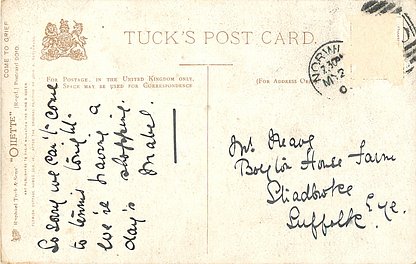 TUCK'S POST CARD.
FOR POSTAGE, IN THE UNITED KINGDOM ONLY,
SPACE MAY BE USED FOR CORRESPONDENCE
(FOR ADDRESS
COME TO GRIEF
"OILETTE" [Regd.] Postcard
NORWI
7.30PM
MY 2
0
So sorry we can't come
to tennis tonight-
We're having a
day's shopping.
Mabel.
Mr
House Farm
Stradbroke
Suffolk Eye.